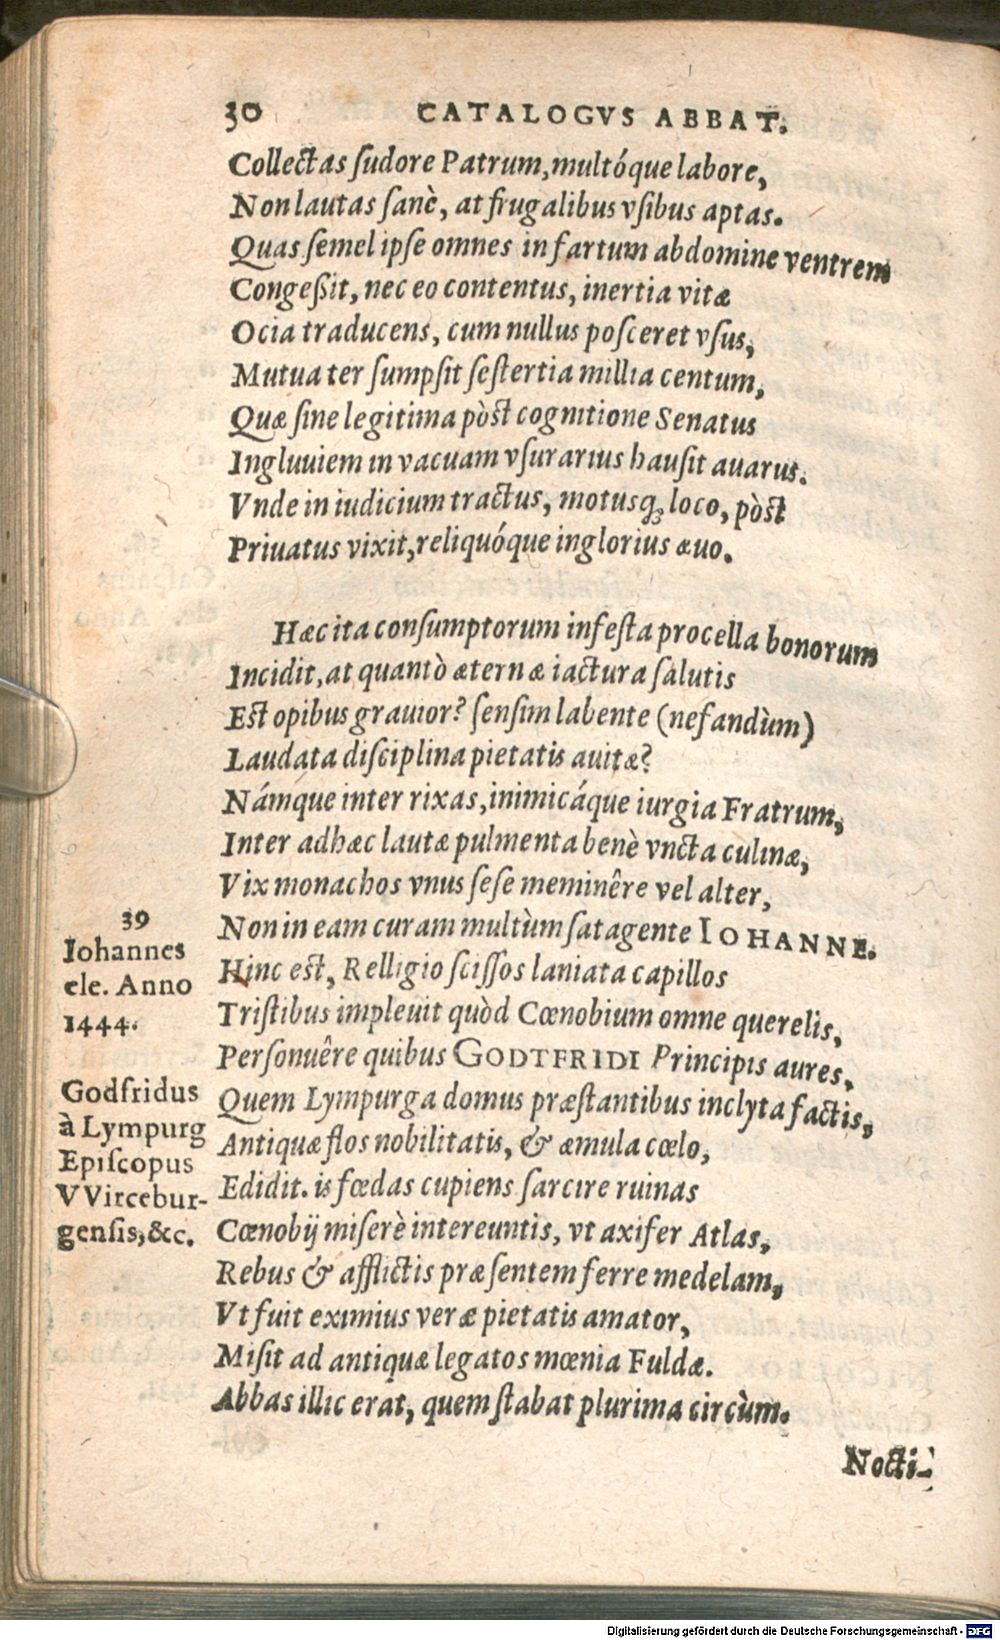 30 CATALOGVS ABBAT.
Collectas ſudore Patrum, multóque labore,
Non lautas ſanè, at frugalibus vſibus aptas.
Quas ſemel ipſe omnes in fartum abdomine ventrem
Congeßit, nec eo contentus, inertia vitæ
Ocia traducens, cum nullus poſceret vſus,
Mutua ter ſumpſit ſeſtertia millia centum,
Quæ ſine legitima pòst cognitione Senatus
Ingluuiem in vacuam vſurarius hauſit auarus.
Vnde in iudicium tractus, motusq́; loco, pòst
Priuatus vixit, reliquóque inglorius æuo.
Hæc ita conſumptorum infeſta procella bonorum
Incidit, at quantò æternæ iactura ſalutis
Est opibus grauior? ſenſim labente (nefandùm)
Laudata diſciplina pietatis auitæ?
Námque inter rixas, inimicáque iurgia Fratrum,
Inter adhæc lautæ pulmenta benè vncta culinæ,
Vix monachos vnus ſeſe meminêre vel alter,
39
Iohannes
ele. Anno
1444.
Non in eam curam multùm ſatagente IOHANNE.
Hinc est, Relligio ſciſſos laniata capillos
Triſtibus impleuit quòd Cœnobium omne querelis,
Perſonuêre quibus GODTFRIDI Principis aures,
Godfridus
à Lympurg
Epiſcopus
VVircebur-
genſis, &c.
Quem Lympurga domus præſtantibus inclyta factis,
Antiquæ flos nobilitatis, & æmula cœlo,
Edidit. is fœdas cupiens ſarcire ruinas
Cœnobij miſerè intereuntis, vt axifer Atlas,
Rebus & afflictis præſentem ferre medelam,
Vt fuit eximius veræ pietatis amator,
Miſit ad antiquæ legatos mœnia Fuldæ.
Abbas illic erat, quem ſtabat plurima circùm.
Nocti-
Digitalisierung gefördert durch die Deutsche Forschungsgemeinschaft - DFG